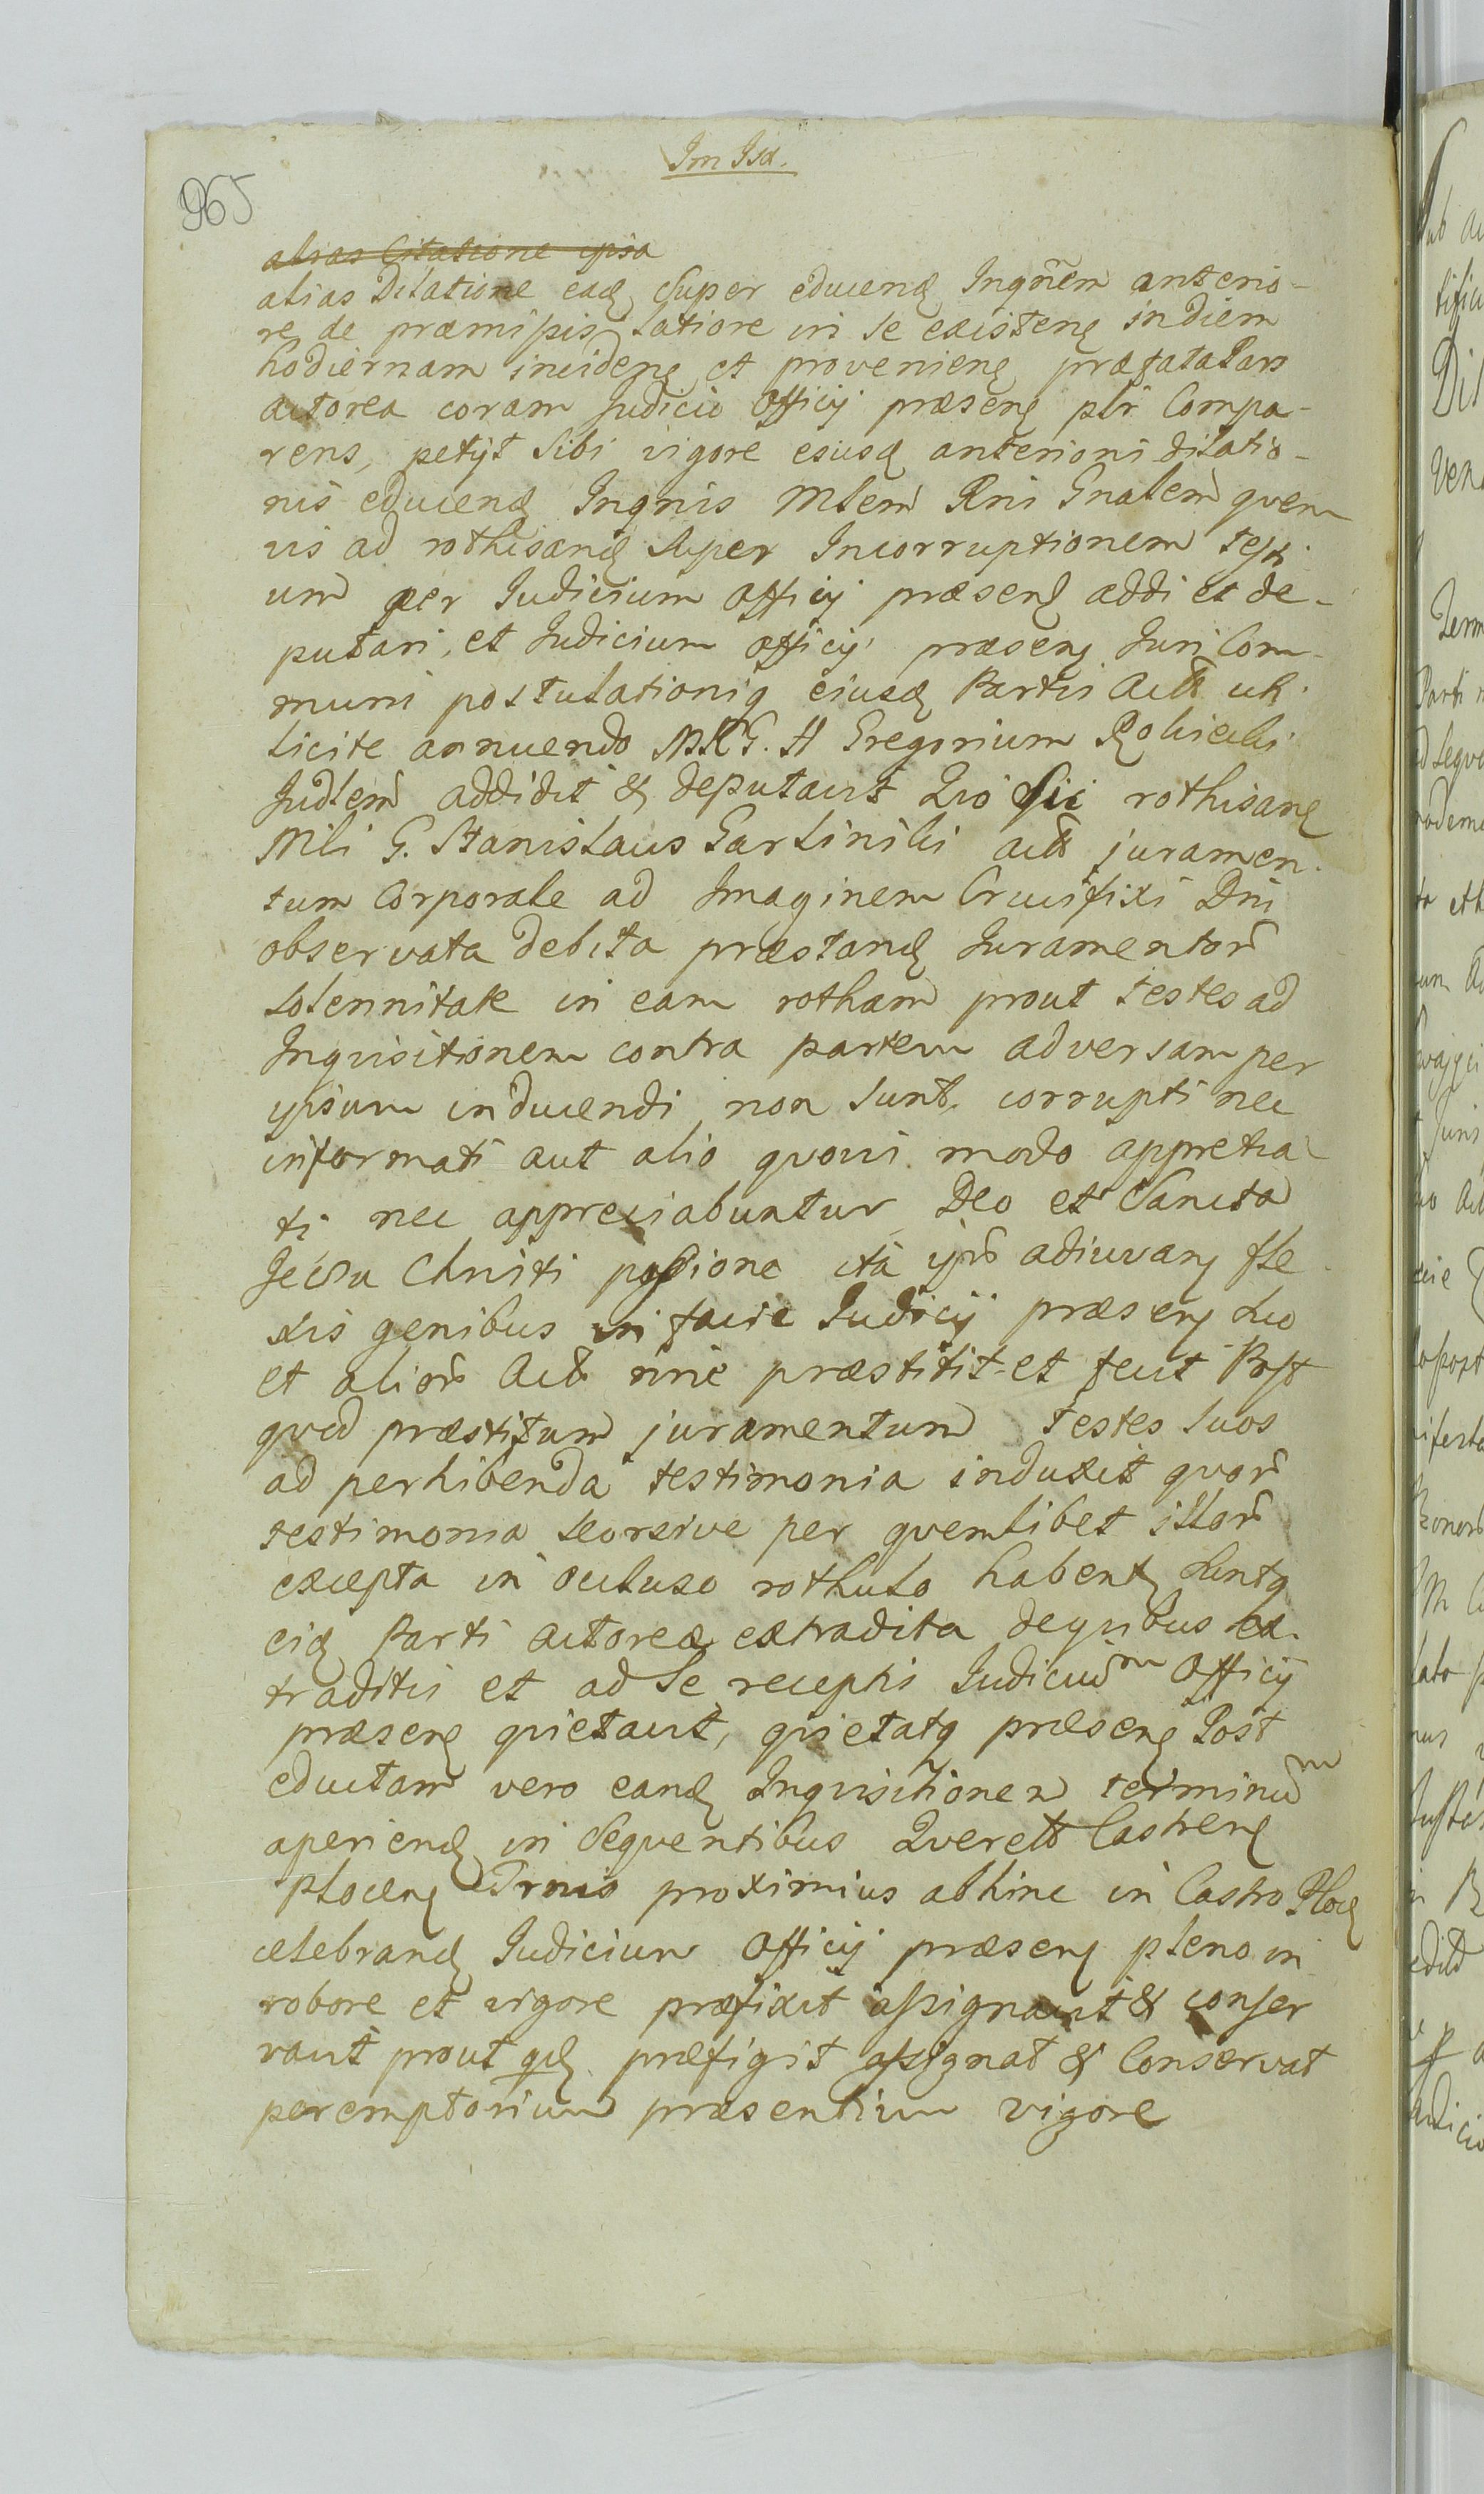 Im Isd.
965
alias Citatione ipsa
alias Dilatione eadq Super educendq Inqnem anterio-
re de præmissis latiore in se existenq in diem
hodiernam incidenq et provenienq præfata Pars
actorea coram Judicio Officij præsenq plr Compa-
rens, petyt Sibi vigore ejusdq anterioris dilatio-
nis educendq Inqnis Mlem Rni Gnalem quem
vis ad rothisandq Super Incorruptionem testi
um per Judicium Officij præsenq addi et de-
putari, et Judicium officij præsenq Juri Com-
muni postulationiq ejusdq Partis Act uti
licite annuendo MRG. H Gregorium
Judlem addidit & deputavit Quo sic rothisanq
Mli G. Stanislaus Garlinski act juramen-
tum Corporale ad Imaginem Crucifixi Dni
observata debita præstandq Juramentor
solennitate in eam rotham prout testes ad
Inquisitionem contra partem adversam per
ipsum inducendi non sunt corrupti nec
informati aut alio quovis modo appretia-
ti nec appreciabuntur Deo et Sancta
Jesu Christi passione ita ipm adiuvanq fle-
xis genibus in facie Judicij præsenq suo
et alior Act nne præstitit et fecit Post
quod præstitum juramentum testes suos
ad perhibenda testimonia induxit quor
testimonia seorsive per quemlibet illor
excepta in occluso rothulo habentq suntq
eidq Parti actoreæ extradita de quibus ex-
traditis et ad Se receptis Judicium Officij
præsenq quietavit, quietatq præsenq Post
eductam vero eandq Inquisitionem terminum
aperiendq in Sequentibus Querelis Castrenq
Plocenq Trnis proximius abhinc in Castro Plocq
celebrandq Judicium Officij præsenq pleno in
robore et vigore præfixit assignavit & conser
vavit prout qdq præfigit assignat & Conservat
peremptorium præsentium vigore